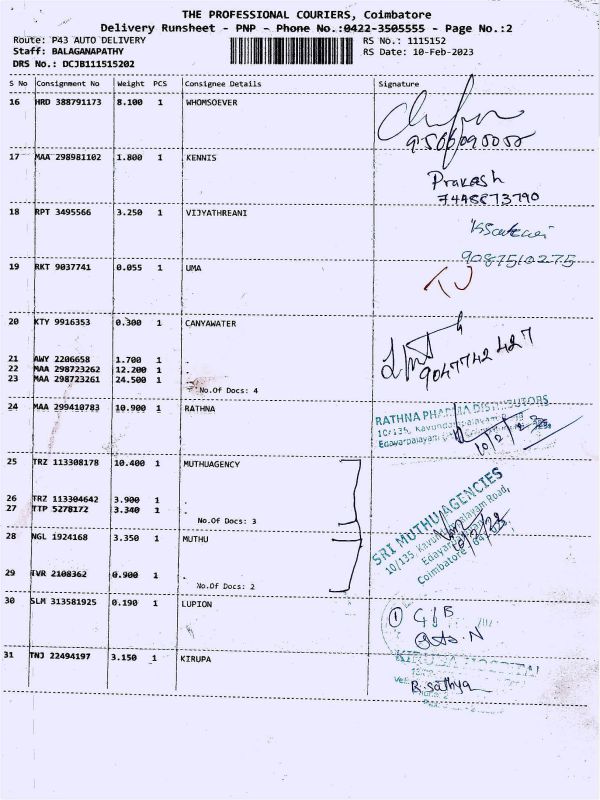 THE PROFESSIONAL COURIERS, Coimbatore
Delivery Runsheet - PNP - Phone No.:0422-3505555 - Page No.:2
Route: P43 AUTO DELIVERY RS No.: 1115152
Staff: BALAGANAPATHY RS Date: 10-Feb-2023
DRS No.: DCJB111515202
S No Consignment No Weight PCS Consignee Details Signature
16 HRD 388791173 8.100 1 WHOMSOEVER
17 MAA 298981102 1.800 1 KENNIS
Prakash
7448873790
18 RPT 3495566 3.250 1 VIJYATHREANI
9087510275
19 RKT 9037741 0.055 1 UMA
20 KTY 9916353 0.300 1 CANYAWATER
9047742427
21 AWY 2206658 1.700 1 .
22 MAA 298723262 12.200 1 .
23 MAA 298723261 24.500 1 .
No.Of Docs: 4
24 MAA 299410783 10.900 1 RATHNA
RATHNA PHARMA DISTRIBUTORS
10/135, Kavundapalayam
Edayarpalayam
10/2/23
25 TRZ 113308178 10.400 1 MUTHUAGENCY
26 TRZ 113304642 3.900 1 .
27 TTP 5278172 3.340 1 .
No.Of Docs: 3
SRI MUTHU AGENCIES
10/135, Kavundapalayam Road,
Coimbatore
10/2/23
28 NGL 1924168 3.350 1 MUTHU
29 TVR 2108362 0.900 1 .
No.Of Docs: 2
30 SLM 313581925 0.190 1 LUPION
31 TNJ 22494197 3.150 1 KIRUPA
HOSPITAL
B. Sathya